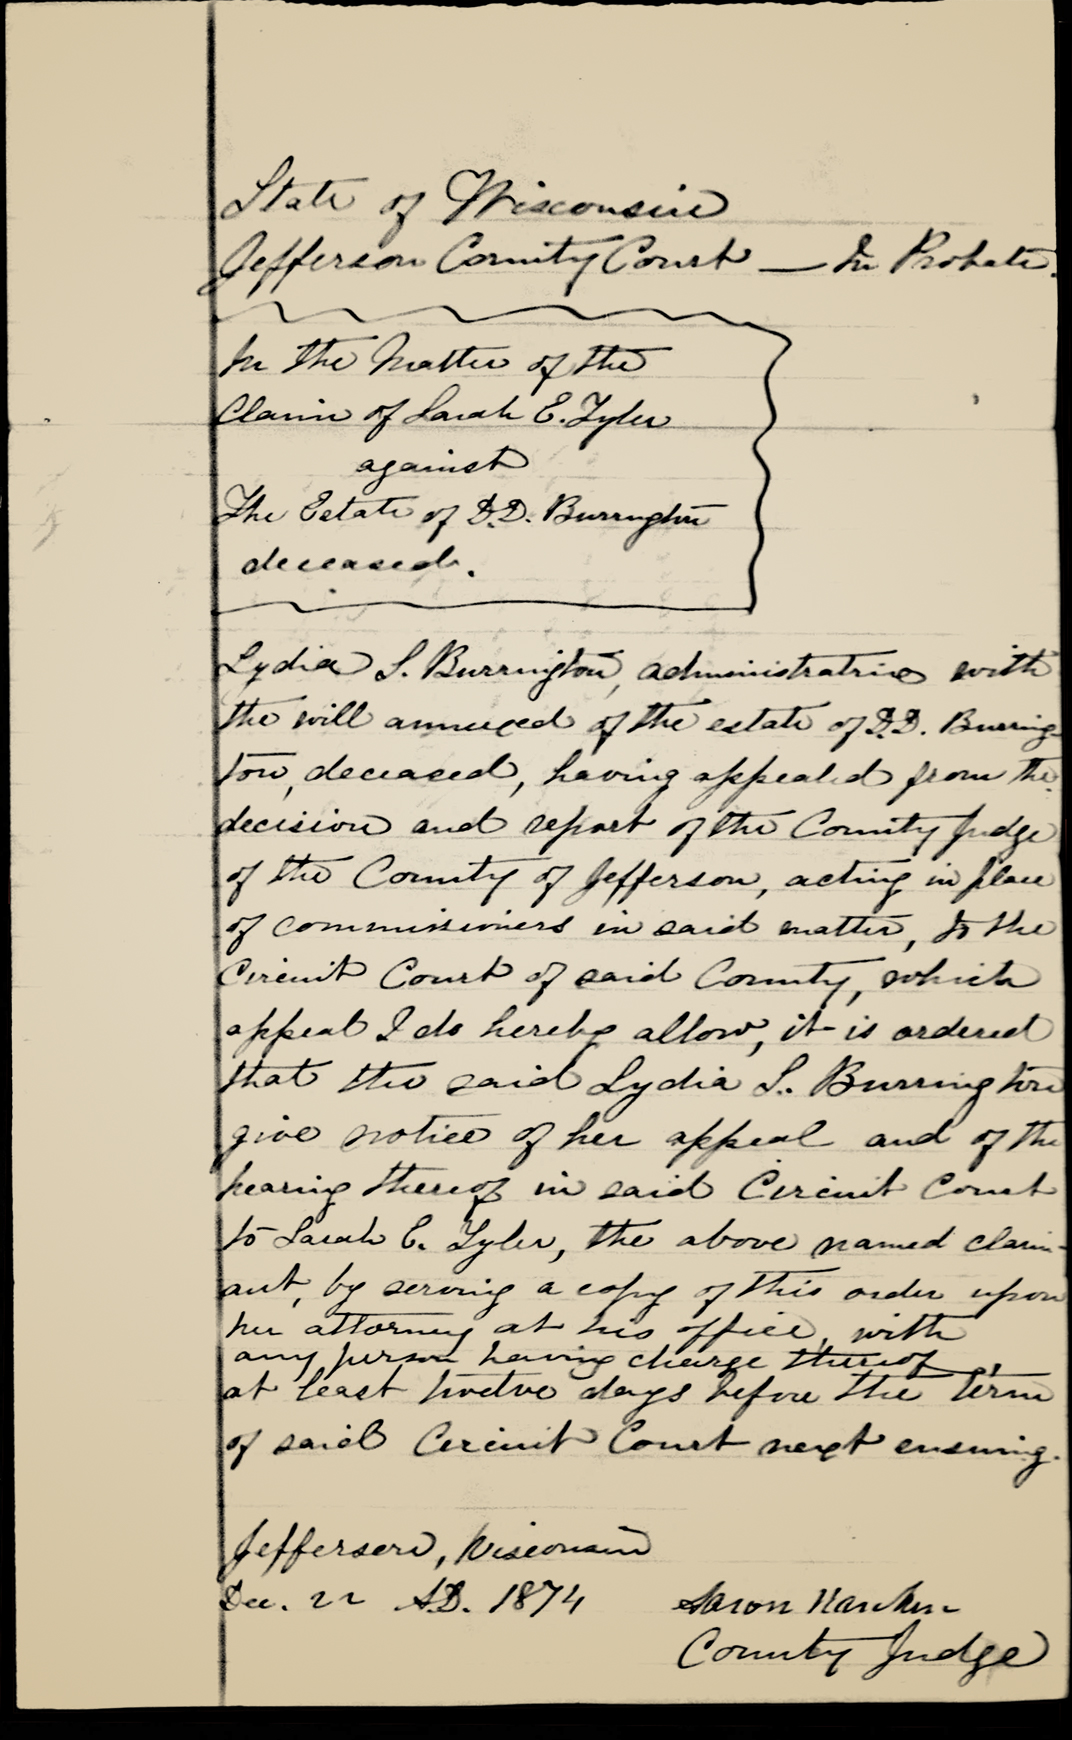 State of Wisconsin
Jefferson County Court — In Probate.
In the Matter of the
Claim of Sarah E. Tyler
against
The Estate of D.D. Burrington
deceased.
Lydia S. Burrington, administratrix with
the will annexed of the estate of D.D. Burring-
ton, deceased, having appealed from the
decision and report of the County Judge
of the County of Jefferson, acting in place
of commissioners in said matter, to the
Circuit Court of said County, which
appeal I do hereby allow, it is ordered
that the said Lydia S. Burrington
give notice of her appeal and of the
hearing thereof in said Circuit Court
to Sarah E. Tyler, the above named claim-
ant, by serving a copy of this order upon
her attorney at his office, with
any person having charge thereof
at least twelve days before the Term
of said Circuit Court next ensuing.
Jefferson, Wisconsin
Dec. 22 A.D. 1874
County Judge